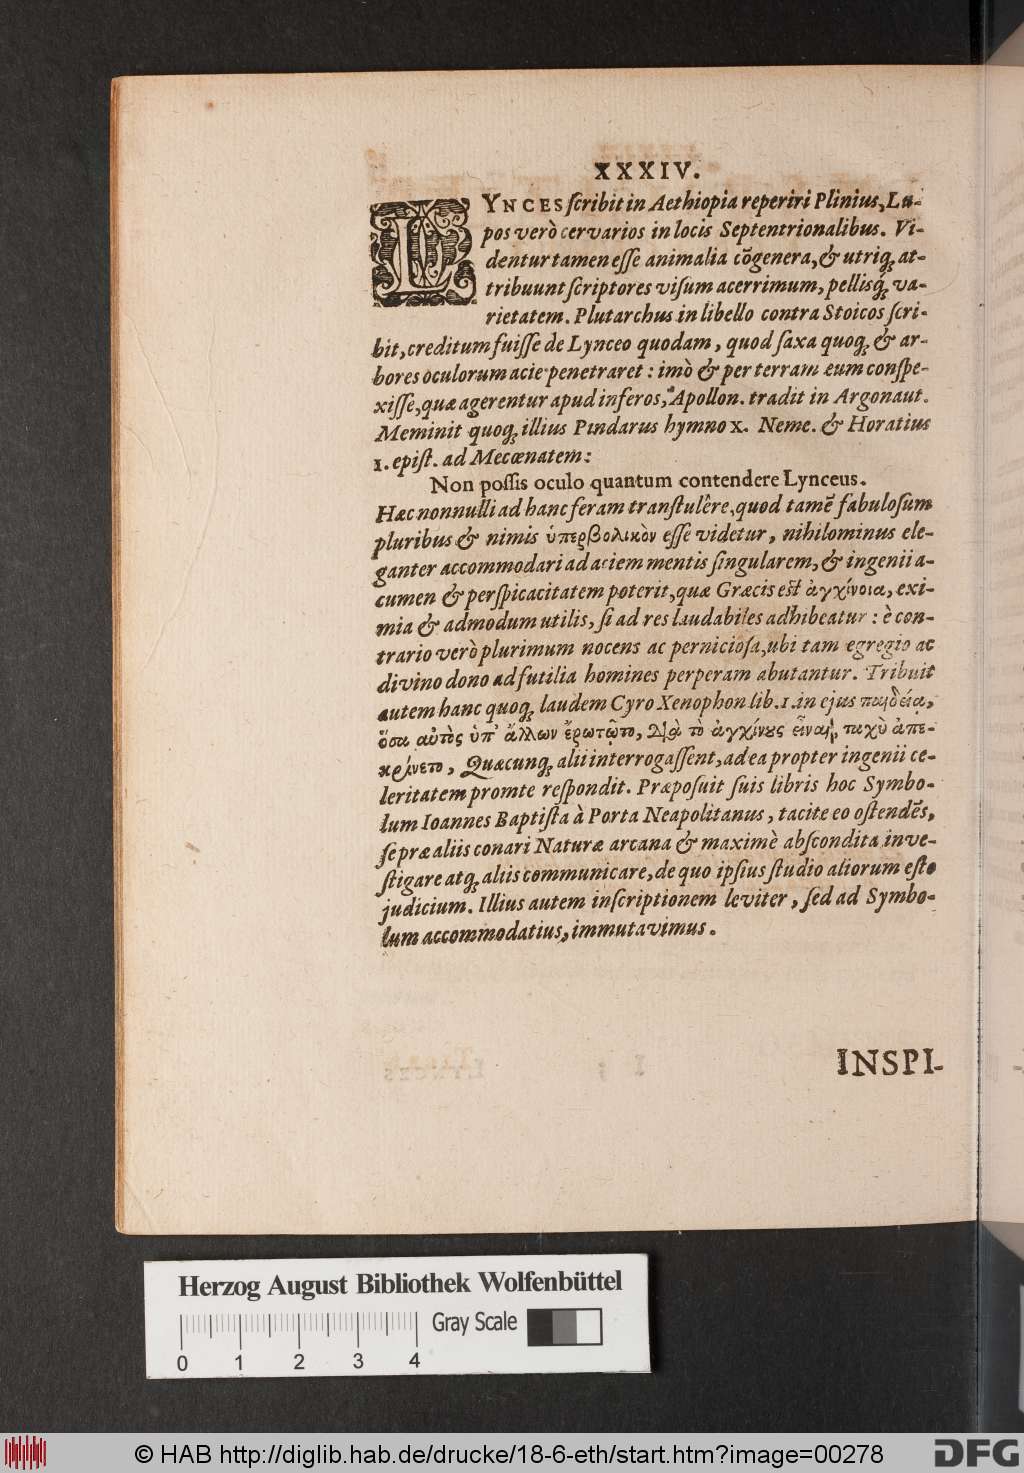 XXXIV.
LYNCES ſcribit in Aethiopia reperiri Plinius, Lu-
pos verò cervarios in locis Septentrionalibus. Vi-
dentur tamen eſſe animalia cõgenera, & utriq; at-
tribuunt ſcriptores viſum acerrimum, pellisq; va-
rietatem. Plutarchus in libello contra Stoicos ſcri-
bit, creditum fuiſſe de Lynceo quodam, quod ſaxa quoq; & ar-
bores oculorum acie penetraret: imò & per terram eum conſpe-
xiſſe, quæ agerentur apud inferos, Apollon. tradit in Argonaut.
Meminit quoq; illius Pindarus hymno X. Neme. & Horatius
1. epiſt. ad Mecœnatem:
Non poſſis oculo quantum contendere Lynceus.
Hæc nonnulli ad hanc feram tranſtulêre, quod tamẽ fabuloſum
pluribus & nimis ὑπερβολικὸν eſſe videtur, nihilominus ele-
ganter accommodari ad aciem mentis ſingularem, & ingenii a-
cumen & perſpicacitatem poterit, quæ Græcis eſt ἀγχίνοια, exi-
mia & admodum utilis, ſi ad res laudabiles adhibeatur: è con-
trario verò plurimum nocens ac pernicioſa, ubi tam egregio ac
divino dono ad futilia homines perperam abutantur. Tribuit
autem hanc quoq; laudem Cyro Xenophon lib. 1. in ejus παιδείᾳ,
ὅσα αὐτὸς ὑπ' ἄλλων ἐρωτῷτο, διὰ τὸ ἀγχίνους εἶναι, ταχὺ ἀπε-
κρίνετο, Quæcunq; alii interrogaſſent, ad ea propter ingenii ce-
leritatem promte reſpondit. Præpoſuit ſuis libris hoc Symbo-
lum Ioannes Baptiſta à Porta Neapolitanus, tacite eo oſtendẽs,
ſe præ aliis conari Naturæ arcana & maximè abſcondita inve-
ſtigare atq; aliis communicare, de quo ipſius ſtudio aliorum eſto
judicium. Illius autem inſcriptionem leviter, ſed ad Symbo-
lum accommodatius, immutavimus.
INSPI-
Herzog August Bibliothek Wolfenbüttel
Gray Scale
0 1 2 3 4
© HAB http://diglib.hab.de/drucke/18-6-eth/start.htm?image=00278
DFG